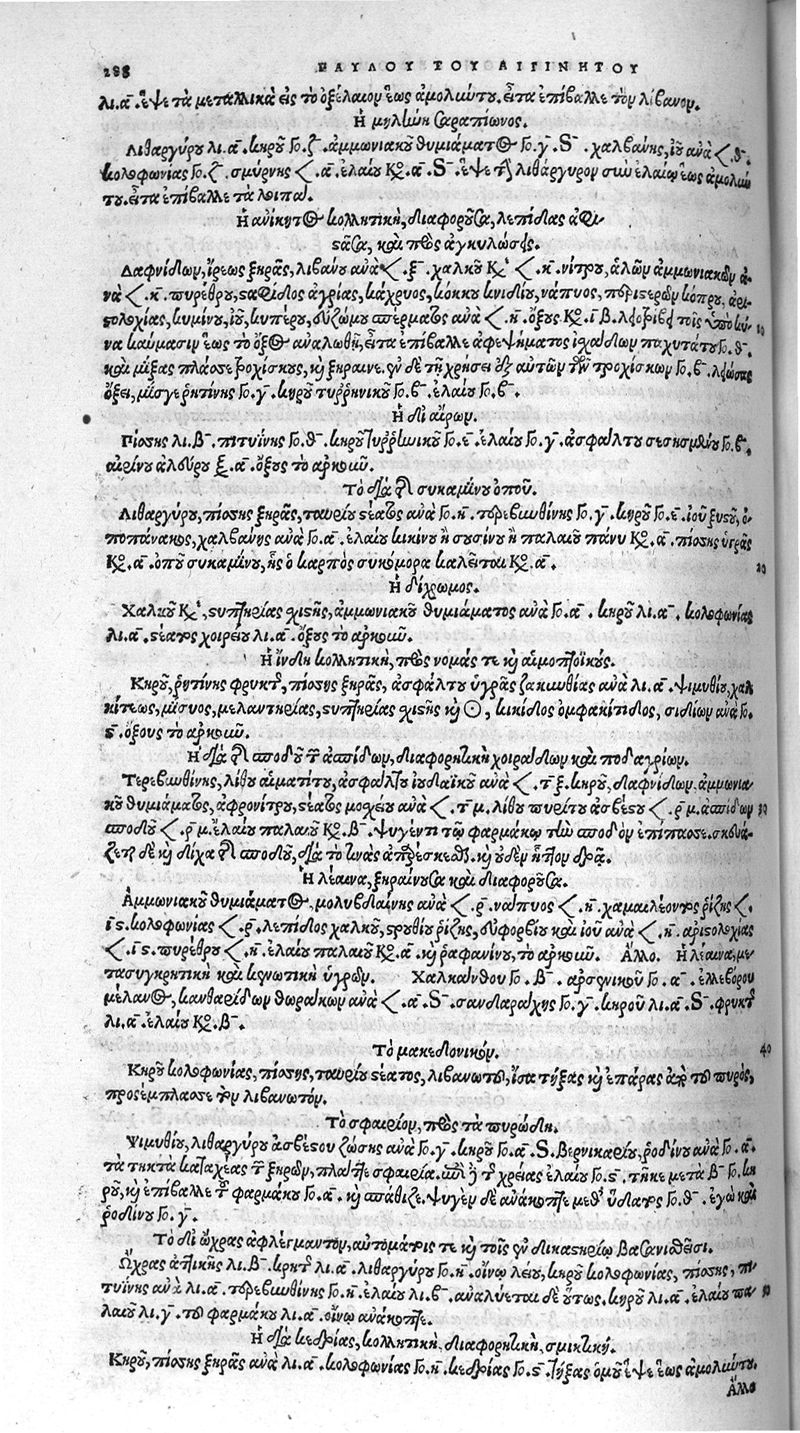 288 ΠΑΥΛΟΥ ΤΟΥ ΑΙΓΙΝΗΤΟΥ
λι.α̅. ἕψε τὰ μεταλλικὰ εἰς τὸ ὀξέλαιον ἕως ἀμολύντου. εἶτα ἐπίβαλλε τὸν λίβανον.
Ἡ μηλίνη Σαραπίωνος.
Λιθαργύρου λι.α̅. κηροῦ Γο.ζ̅. ἀμμωνιακοῦ θυμιάματος Γο.γ̅.S̅. χαλβάνης, ἰοῦ ἀνὰ <.θ̅.
κολοφωνίας Γο.ζ̅. σμύρνης <.α̅. ἐλαίου Κο.α̅.S̅. ἕψε τὴν λιθάργυρον σὺν ἐλαίῳ ἕως ἀμολύν
του. εἶτα ἐπίβαλλε τὰ λοιπά.
Ἡ ἀνίκητος κολλητικὴ, διαφοροῦσα, λεπίδας ἀφι
στᾶσα, καὶ πρὸς ἀγκυλώσεις.
Δαφνίδων, ἴρεως ξηρᾶς, λιβάνου ἀνὰ <.ξ̅. χαλκοῦ κεκ <.κ̅. νίτρου, ἁλῶν ἀμμωνιακῶν ἀ-
νὰ <.κ̅. πυρέθρου, σταφίδος ἀγρίας, κάχρυος, κόκκου κνιδίου, νάπυος, περιστερῶν κόπρου, ἀρι-
στολοχίας, κυμίνου, ἰοῦ, κυπέρου, εὐζώμου σπέρματος ἀνὰ <.η̅. ὄξους Κο.ιβ̅. λειοτρίβει τοῖς ὑπὸ κύ- 10
να καύμασιν ἕως τὸ ὄξος ἀναλωθῇ, εἶτα ἐπίβαλλε ἀφεψήματος ἰσχάδων παχυτάτου Γο.θ̅.
καὶ μίξας πλάσσε τροχίσκους, καὶ ξήραινε. ἐν δὲ τῇ χρήσει ἐξ αὐτῶν τῶν τροχίσκων Γο.ϛ̅. λειώσας
ὄξει, μίσγε ῥητίνης Γο.γ̅. κηροῦ τυῤῥηνικοῦ Γο.ϛ̅. ἐλαίου Γο.ϛ̅.
Ἡ δι' αἰρῶν.
Πίσσης λι.β̅. πιτυΐνης Γο.θ̅. κηροῦ τυῤῥηνικοῦ Γο.ε̅. ἐλαίου Γο.γ̅. ἀσφάλτου σεσησμένου Γο.ϛ̅.
αἰρίνου ἀλεύρου ξ.α̅. ὄξους τὸ ἀρκοῦν.
Τὸ διὰ τοῦ συκαμίνου ὀποῦ.
Λιθαργύρου, πίσσης ξηρᾶς, ταυρείου στέατος ἀνὰ Γο.η̅. τερεβινθίνης Γο.γ̅. κηροῦ Γο.ε̅. ἰοῦ ξυστοῦ, ὀ-
ποπάνακος, χαλβάνης ἀνὰ Γο.α̅. ἐλαίου κικίνου ἢ σουσίνου ἢ παλαιοῦ πάνυ Κο.α̅. πίσσης ὑγρᾶς
Κο.α̅. ὀποῦ συκαμίνου, ἧς ὁ καρπὸς συκόμορα καλεῖται Κο.α̅. 20
Ἡ δίχρωμος.
Χαλκοῦ κεκ, στυπτηρίας σχιστῆς, ἀμμωνιακοῦ θυμιάματος ἀνὰ Γο.α̅. κηροῦ λι.α̅. κολοφωνίας
λι.α̅. στέατος χοιρείου λι.α̅. ὄξους τὸ ἀρκοῦν.
Ἡ ἰνδὴ κολλητικὴ, πρὸς νομάς τε καὶ αἱμοπτοϊκούς.
Κηροῦ, ῥητίνης φρυκτ, πίσσης ξηρᾶς, ἀσφάλτου ὑγρᾶς ζακυνθίας ἀνὰ λι.α̅. ψιμυθίου, χαλ
κίτεως, μίσυος, μελαντηρίας, στυπτηρίας σχιστῆς καὶ ☉, κικίδος ὀμφακίτιδος, σιδίων ἀνὰ Γο.
ϛ̅. ὄξους τὸ ἀρκοῦν.
Ἡ διὰ τοῦ σποδοῦ τῶν ἀσπίδων, διαφορητικὴ χοιράδων καὶ ποδαγρίων.
Τερεβινθίνης, λίθου αἱματίτου, ἀσφάλτου ἰουδαϊκοῦ ἀνὰ <.τ̅ξ̅. κηροῦ, δαφνίδων, ἀμμωνια-
κοῦ θυμιάματος, ἀφρονίτρου, στέατος μοσχείου ἀνὰ <.τ̅μ. λίθου πυρίτου ἀσβέστου <.ρ̅μ. ἀσπίδων 30
σποδοῦ <.ρ̅μ. ἐλαίου παλαιοῦ Κο.β̅. ψυγέντι τῷ φαρμάκῳ τὴν σποδὸν ἐπίπασσε. σκευά-
ζεται δὲ καὶ δίχα τοῦ σποδοῦ, διὰ τό τινας ἀπαρέσκεσθαι. καὶ οὐδὲν ἧττον δρᾷ.
Ἡ λέαινα, ξηραίνουσα καὶ διαφοροῦσα.
Ἀμμωνιακοῦ θυμιάματος, μολυβδαίνης ἀνὰ <.ρ̅. νάπυος <.κ̅. χαμαιλέοντος ῥίζης <.
ιϛ̅. κολοφωνίας <.ρ̅. λεπίδος χαλκοῦ, στρουθίου ῥίζης, εὐφορβίου καὶ ἰοῦ ἀνὰ <.κ̅. ἀριστολοχίας
<.ιϛ̅. πυρέθρου <.κ̅. ἐλαίου παλαιοῦ Κο.α̅. καὶ ῥαφανίνου, τὸ ἀρκοῦν. Ἄλλο. Ἡ λέαινα, με-
τασυγκριτικὴ καὶ κενωτικὴ ὑγρῶν. Χαλκάνθου Γο.β̅. ἀρσενικοῦ Γο.α̅. ἐλλεβόρου
μέλανος, κανθαρίδων θωράκων ἀνὰ <.α̅.S̅. σανδαράχης Γο.γ̅. κηροῦ λι.α̅.S̅. φρυκτ
λι.α̅. ἐλαίου Κο.β̅.
Τὸ μακεδονικόν. 40
Κηροῦ κολοφωνίας, πίσσης, ταυρείου στέατος, λιβανωτοῦ, ἴσα τήξας καὶ ἐπάρας ἀπὸ τοῦ πυρὸς,
προσέμπλασσε τὸν λιβανωτόν.
Τὸ σφαιρίον, πρὸς τὰ πυρώδη.
Ψιμυθίου, λιθαργύρου ἀσβέστου ζώσης ἀνὰ Γο.γ̅. κηροῦ Γο.α̅.S. Βερνικαρίου, ῥοδίνου ἀνὰ Γο.α̅.
τὰ τηκτὰ κατάχεας τῶν ξηρῶν, πλάττε σφαιρία. ἐπὶ δὲ τῆς χρείας ἐλαίου Γο.ϛ̅. τῆκε μετὰ β̅ Γο. κη
ροῦ, καὶ ἐπίβαλλε τοῦ φαρμάκου Γο.α̅. καὶ σπάθιζε. ψυγὲν δὲ ἀνάκοπτε μεθ' ὕδατος Γο.θ̅. ἐγὼ καὶ
ῥοδίνου Γο.γ̅.
Τὸ δι' ὤχρας ἀφλέγμαντον, αὐτομάτοις τε καὶ τοῖς ἐν δικαστηρίῳ βασανισθεῖσι.
Ὤχρας ἀττικῆς λι.β̅. κρητ λι.α̅. λιθαργύρου Γο.η̅. οἴνῳ λείου, κηροῦ κολοφωνίας, πίσσης, πι-
τυΐνης ἀνὰ λι.α̅. τερεβινθίνης Γο.η̅. ἐλαίου λι.ϛ̅. ἀναλύεται δὲ οὕτως. κηροῦ λι.α̅. ἐλαίου πα- 50
λαιοῦ λι.γ̅. τοῦ φαρμάκου λι.α̅. οἴνῳ ἀνάκοπτε.
Ἡ διὰ κεδρίας, κολλητικὴ, διαφορητικὴ, σμικτική.
Κηροῦ, πίσσης ξηρᾶς ἀνὰ λι.α̅. κολοφωνίας Γο.η̅. κεδρίας Γο.ϛ̅. τήξας ὁμοῦ ἕψε ἕως ἀμολύντου.
Ἄλλο